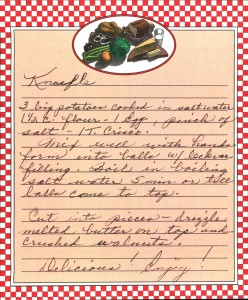 Knoedls
3 big potatoes cooked in salt water
1 1/2 c. flour - 1 Egg, pinch of
salt - 1 T. Crisco.
Mix well with hands
form into balls w/ Leckvar
filling. Boil in boiling
salt water 5 min or till
balls come to top.
Cut into pieces - drizzle
melted butter on top and
crushed walnuts.
Delicious! Enjoy!